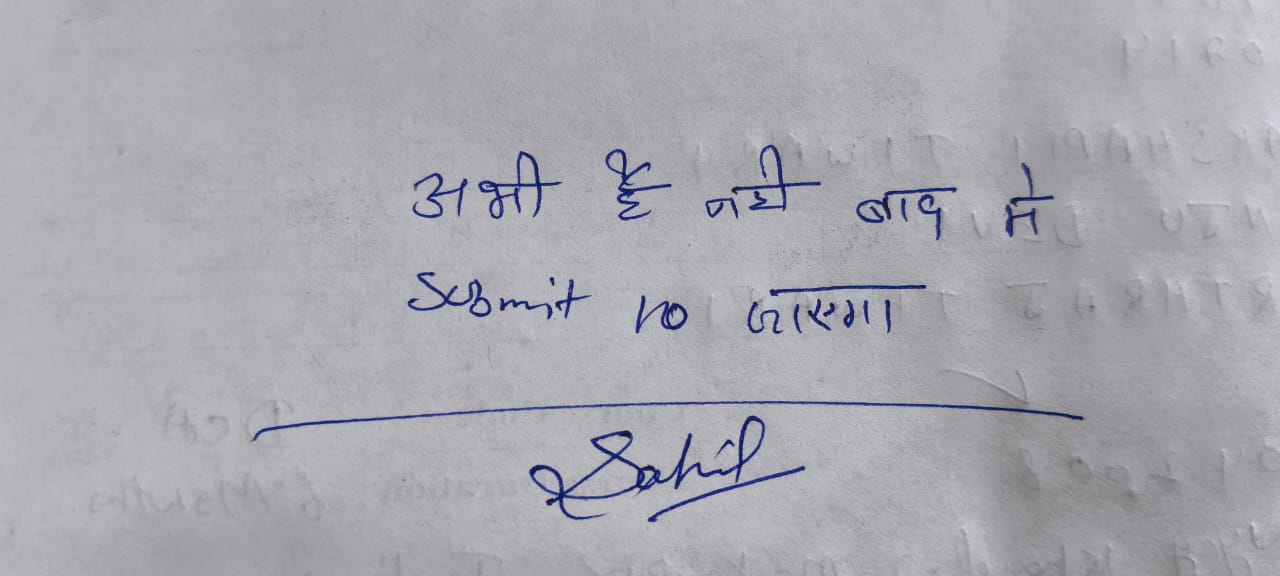 अभी है नही बाद मे
Submit हो जाएगा
Sahil